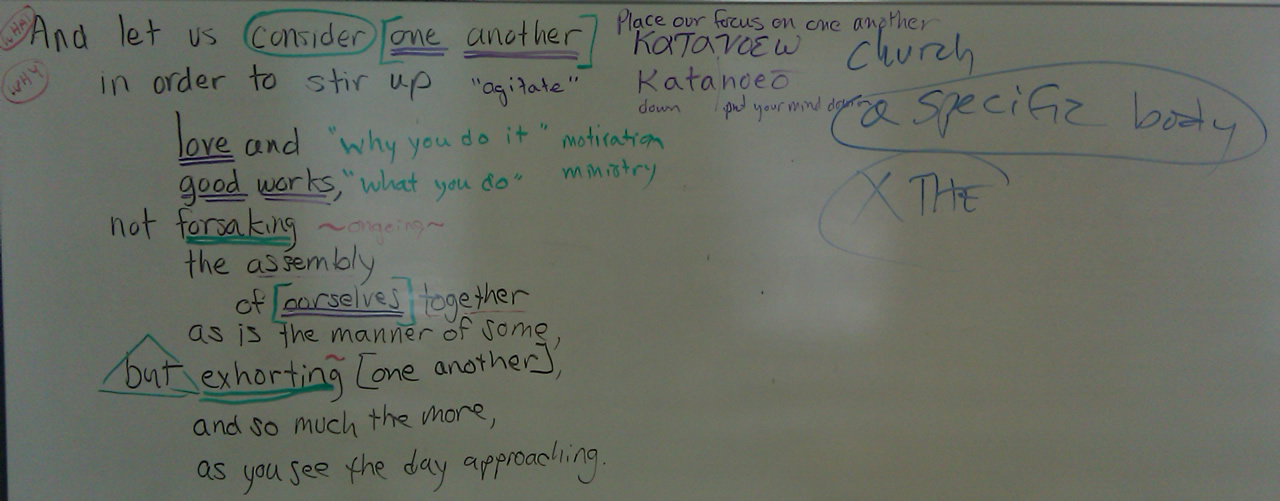 WHA
And let us consider [one another]
Place our focus on one another
κατανοεω
church
WHY
in order to stir up "agitate"
Katanoeō
down put your mind down
a specific body
love and "why you do it" motivation
good works, "what you do" ministry
X THE
not forsaking ~ongoing~
the assembly
of [ourselves] together
as is the manner of some,
but exhorting [one another],
and so much the more,
as you see the day approaching.